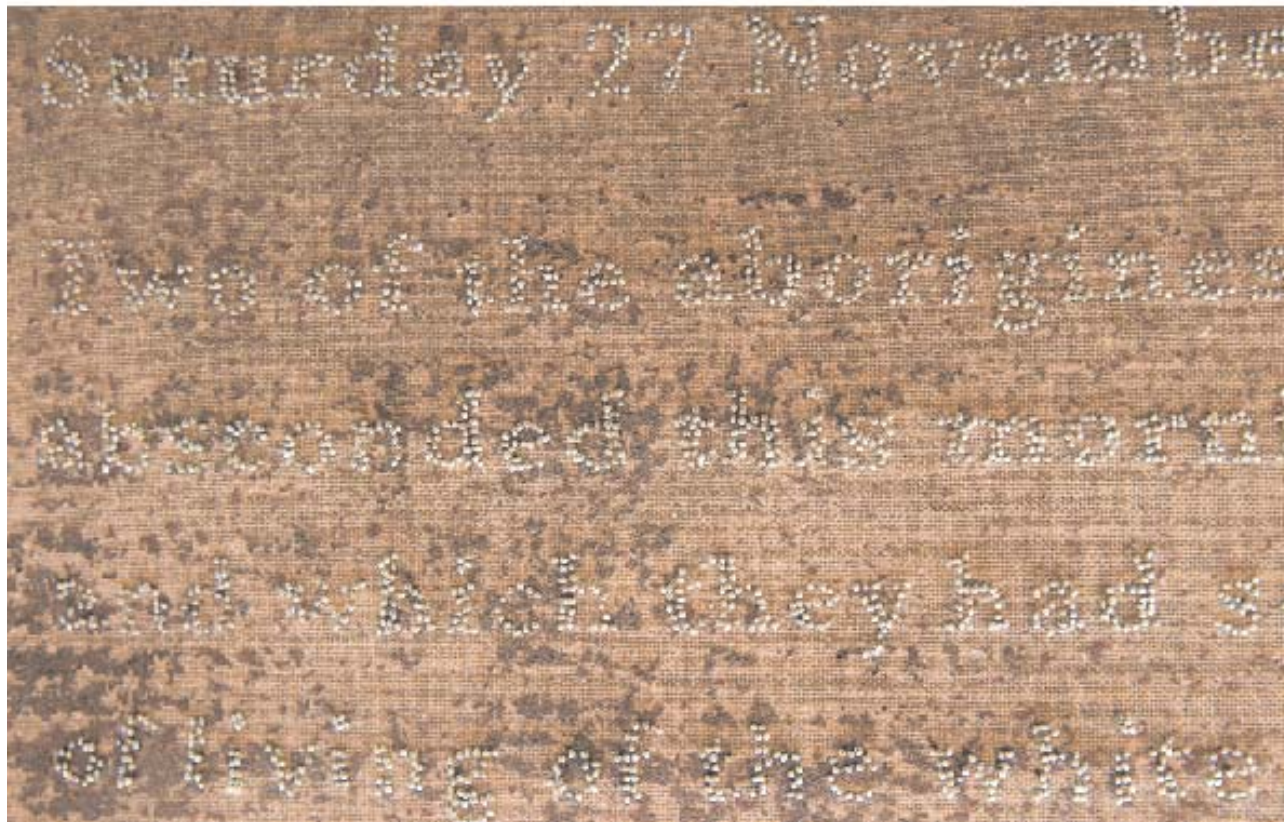 Saturday 27 Novembe
Two of the aborigines
absconded this morn
and which they had s
of living of the white